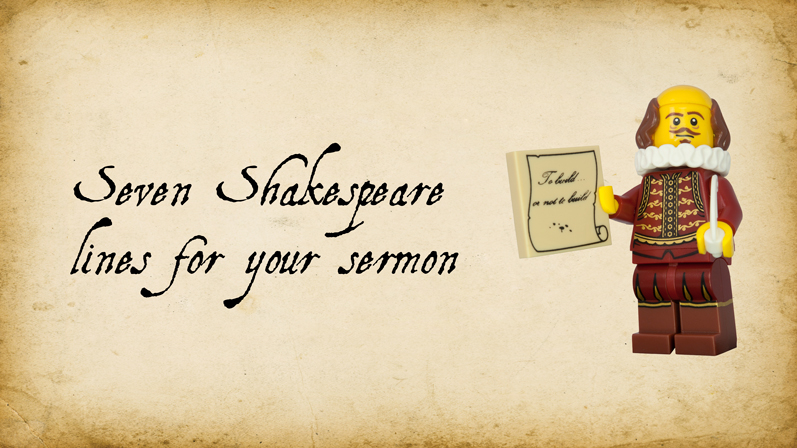 Seven Shakespeare
lines for your sermon
To build...
or not to build